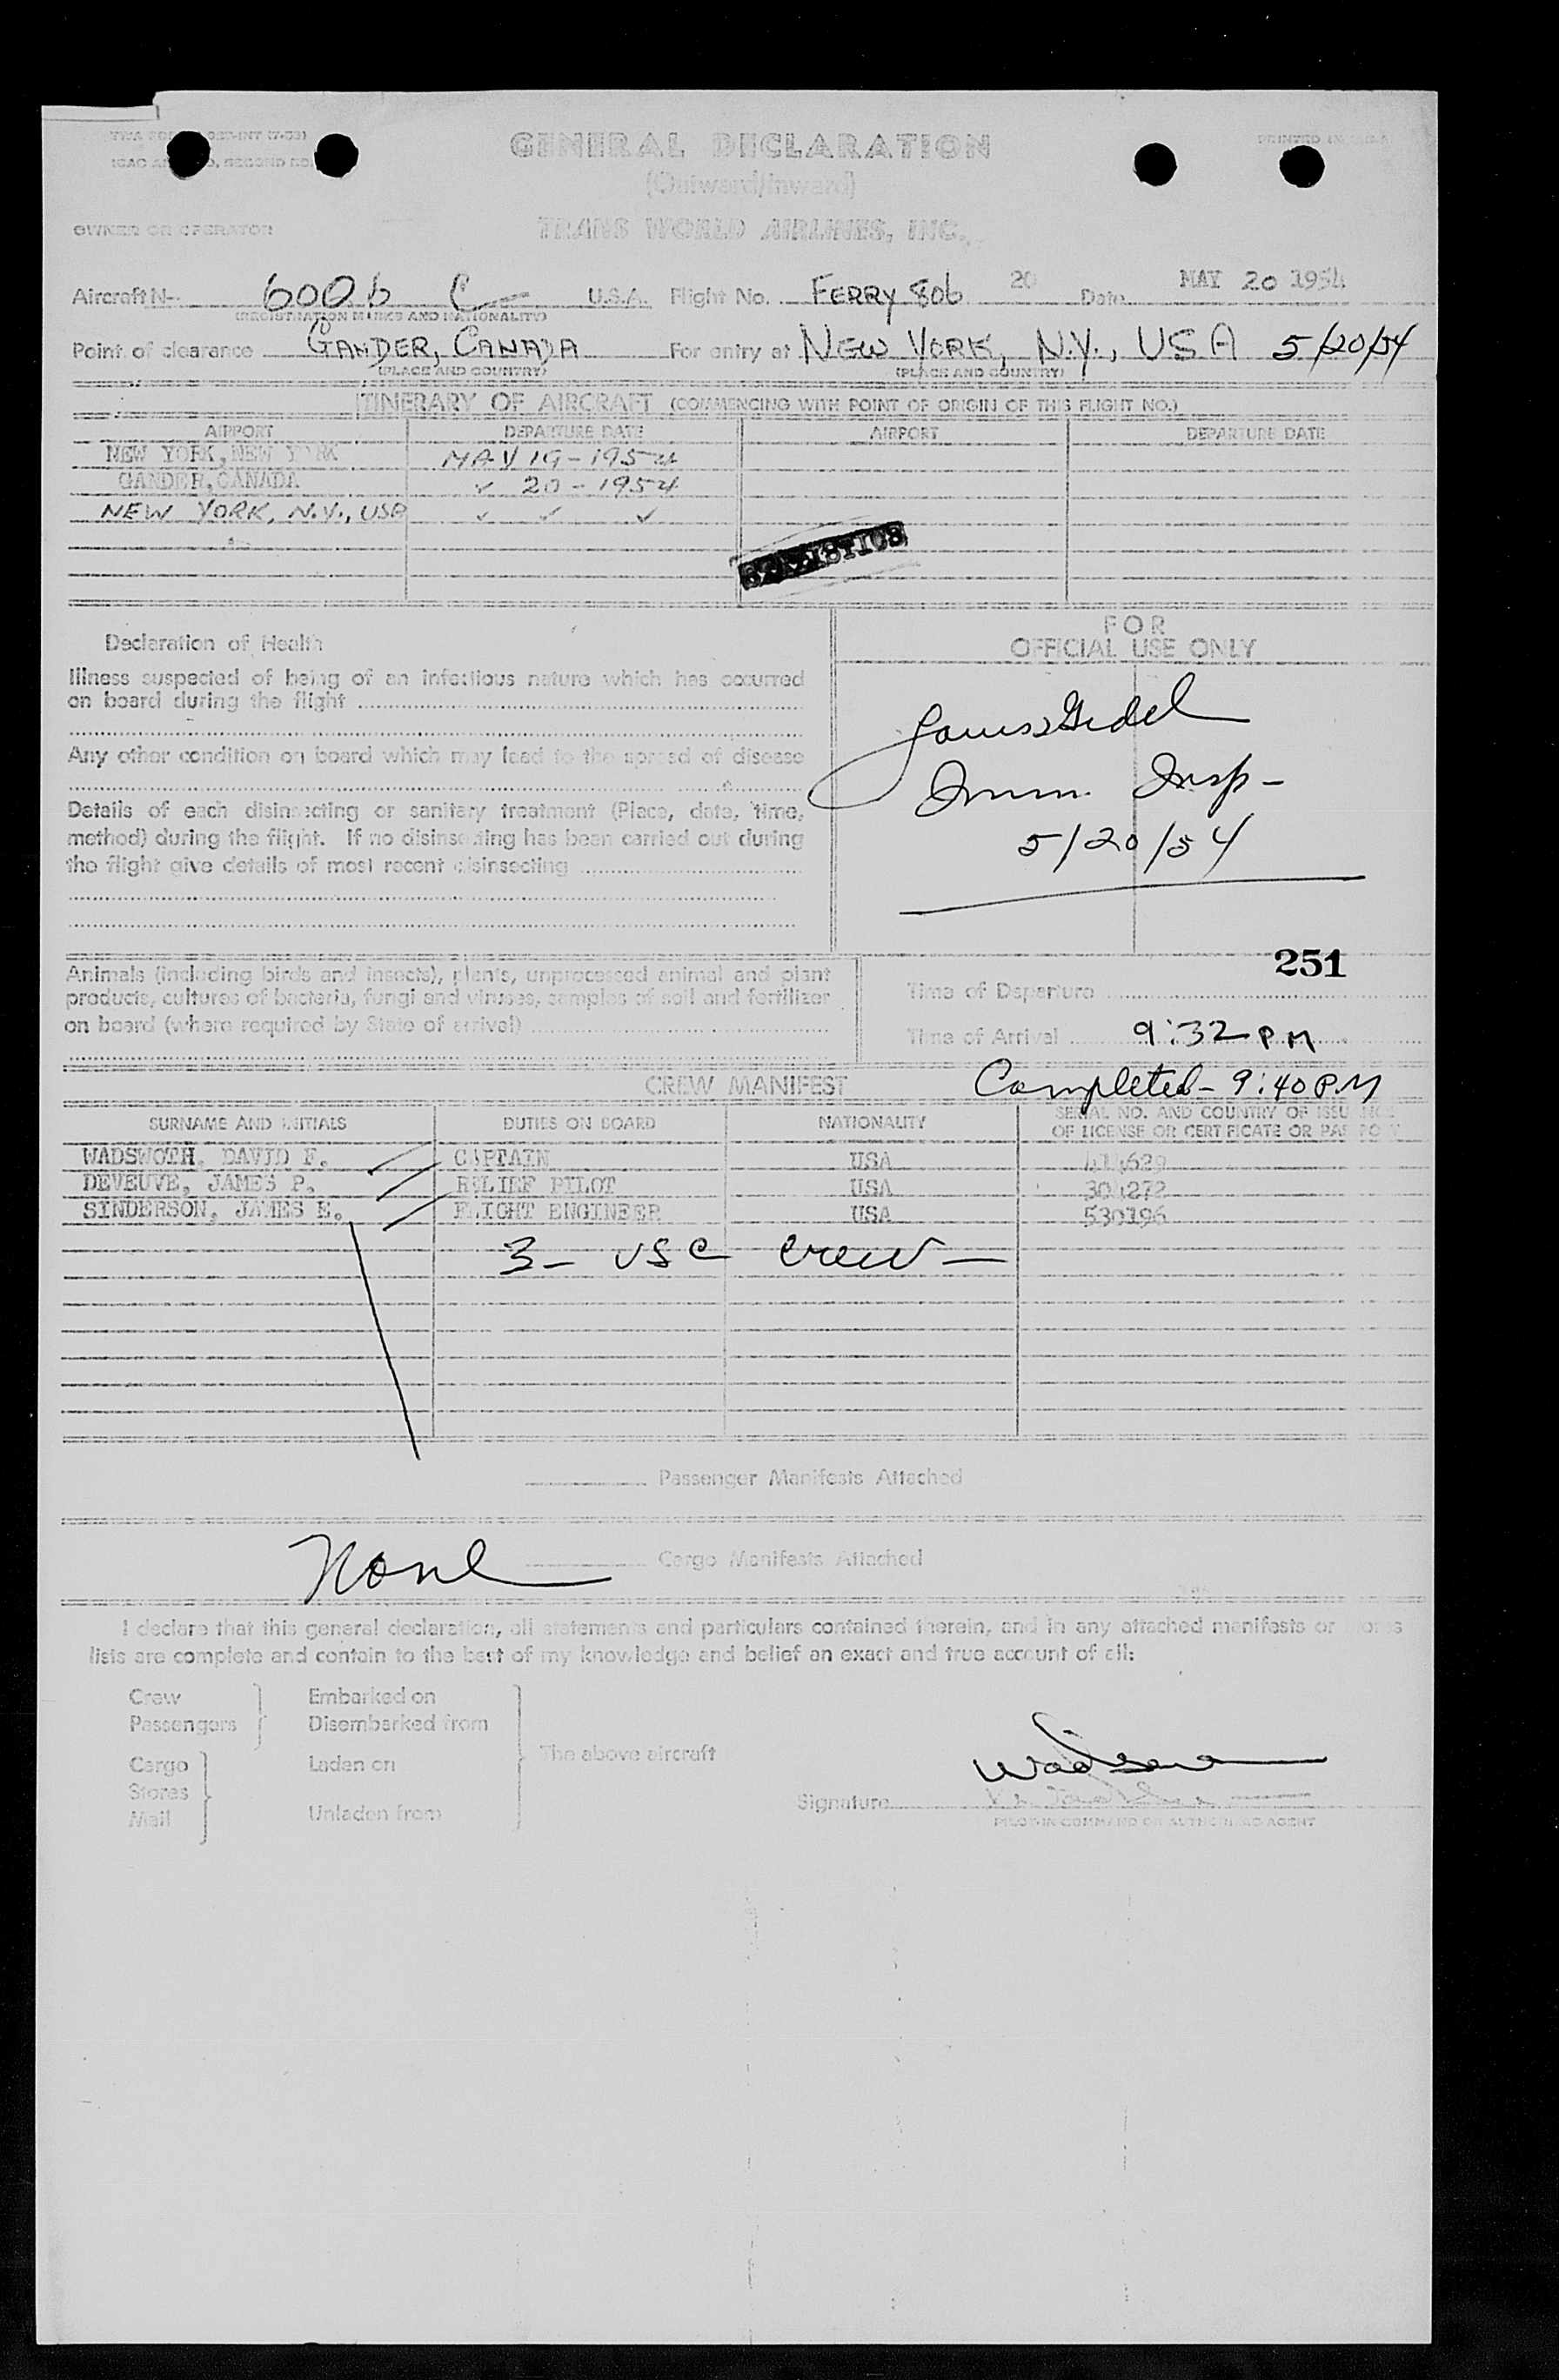 GENERAL DECLARATION
(Outward/Inward)
PRINTED IN U.S.A.
OWNER OR OPERATOR TRANS WORLD AIRLINES, INC.
Aircraft N- 6006 C U.S.A. Flight No. FERRY 806 20 Date MAY 20 1954
(REGISTRATION MARKS AND NATIONALITY)
Point of clearance GANDER, CANADA For entry at NEW YORK, N.Y., USA 5/20/54
(PLACE AND COUNTRY) (PLACE AND COUNTRY)
ITINERARY OF AIRCRAFT (COMMENCING WITH POINT OF ORIGIN OF THIS FLIGHT NO.)
AIRPORT DEPARTURE DATE AIRPORT DEPARTURE DATE
NEW YORK, NEW YORK MAY 19-1954
GANDER, CANADA ✓ 20-1954
NEW YORK, N.Y., USA ✓ ✓ ✓
STATISTICS
Declaration of Health
Illness suspected of being of an infectious nature which has occurred
on board during the flight
Any other condition on board which may lead to the spread of disease
Details of each disinsecting or sanitary treatment (Place, date, time,
method) during the flight. If no disinsecting has been carried out during
the flight give details of most recent disinsecting
FOR
OFFICIAL USE ONLY
Imm. Insp-
5/20/54
251
Animals (including birds and insects), plants, unprocessed animal and plant
products, cultures of bacteria, fungi and viruses, samples of soil and fertilizer
on board (where required by State of arrival)
Time of Departure
Time of Arrival 9:32 PM
CREW MANIFEST Completed - 9:40 P.M
SURNAME AND INITIALS DUTIES ON BOARD NATIONALITY SERIAL NO. AND COUNTRY OF ISSUANCE
OF LICENSE OR CERTIFICATE OR PASSPORT
WADSWOTH, DAVID F. CAPTAIN USA
DEVEUVE, JAMES P. RELIEF PILOT USA
SINDERSON, JAMES E. FLIGHT ENGINEER USA 530196
3- USC crew -
Passenger Manifests Attached
None Cargo Manifests Attached
I declare that this general declaration, all statements and particulars contained therein, and in any attached manifests or stores
lists are complete and contain to the best of my knowledge and belief an exact and true account of all:
Crew Embarked on
Passengers Disembarked from
The above aircraft
Cargo Laden on
Stores
Mail Unladen from
Signature
PILOT-IN-COMMAND OR AUTHORIZED AGENT